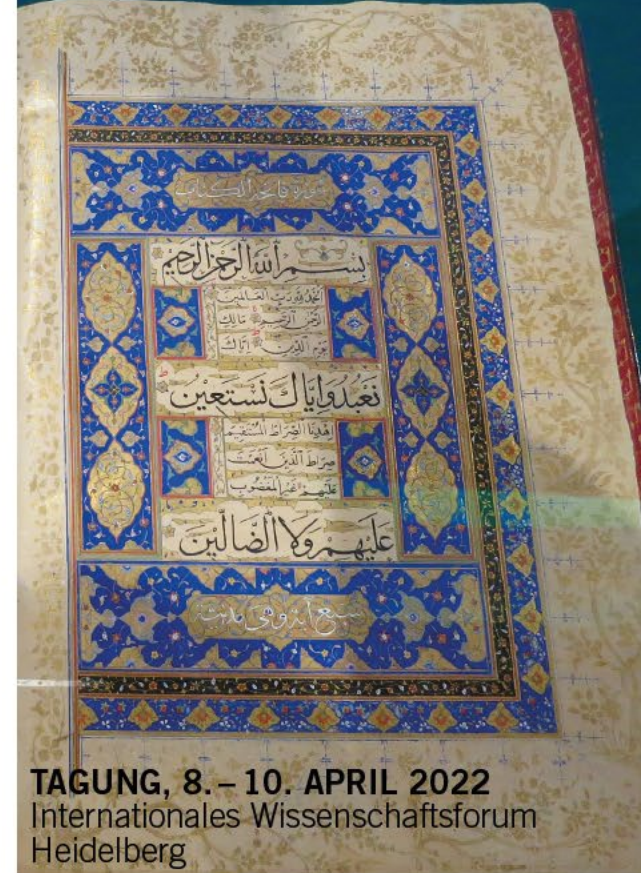 سورة فاتحة الكتاب
بسم الله الرحمن الرحيم
الحمد لله رب العالمين
الرحمن الرحيم مالك
يوم الدين اياك
نعبد واياك نستعين
اهدنا الصراط المستقيم
صراط الذين انعمت
عليهم غير المغضوب
عليهم ولا الضالين
سبع آية وهى
TAGUNG, 8. – 10. APRIL 2022
Internationales Wissenschaftsforum
Heidelberg